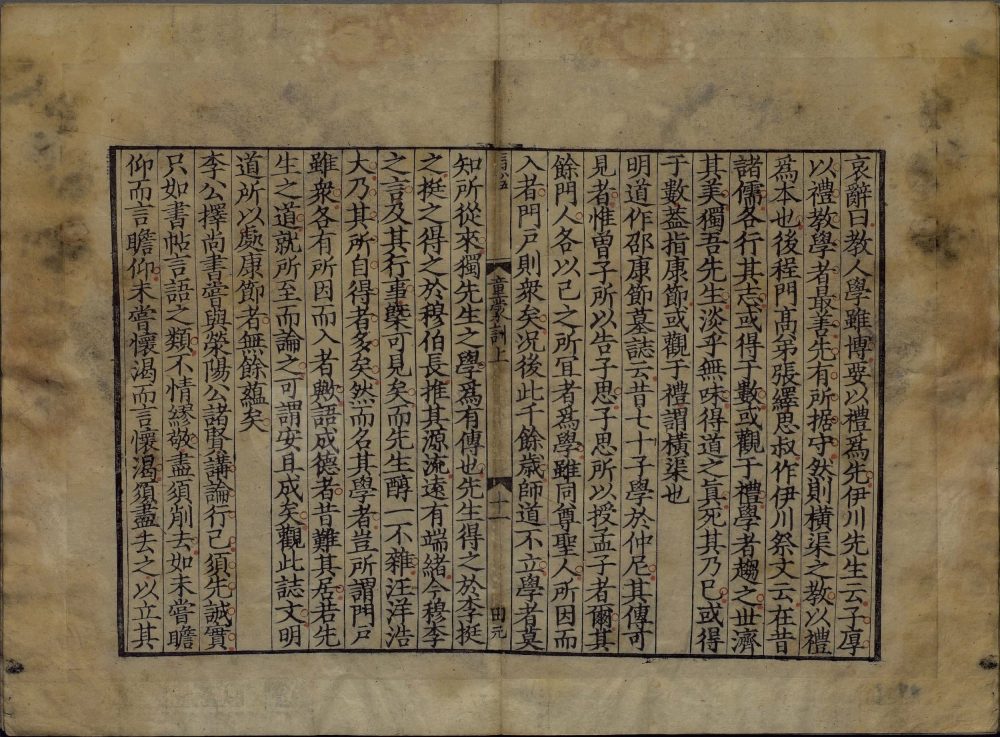 哀辭曰教人學雖博要以禮爲先伊川先生云子厚
以禮教學者㝡善先有所据守然則横渠之教以禮
爲本也後程門髙弟張繹思叔作伊川祭文云在昔
諸儒各行其志或得于數或觀于禮學者趨之世濟
其美獨吾先生淡乎無味得道之真死其乃已或得
于數蓋指康節或觀于禮謂横渠也
明道作邵康節墓誌云昔七十子學於仲尼其傳可
見者惟曽子所以告子思子思所以授孟子者爾其
餘門人各以己之所冝者爲學雖同尊聖人所因而
入者門戸則衆矣况後此千餘歳師道不立學者莫
童蒙訓上
十一
田元
知所從來獨先生之學爲有傳也先生得之於李挺
之挺之得之於穆伯長推其源流遠有端緒今穆李
之言及其行事槩可見矣而先生醇一不雜汪洋浩
大乃其所自得者多矣然而名其學者豈所謂門戸
雖衆各有所因而入者歟語成德者昔難其居若先
生之道就所至而論之可謂安且成矣觀此誌文明
道所以處康節者無餘藴矣
李公擇尚書嘗與滎陽公諸賢講論行己須先誠實
只如書帖言語之類不情繆敬盡須削去如未嘗瞻
仰而言瞻仰未嘗懷渴而言懷渴須盡去之以立其